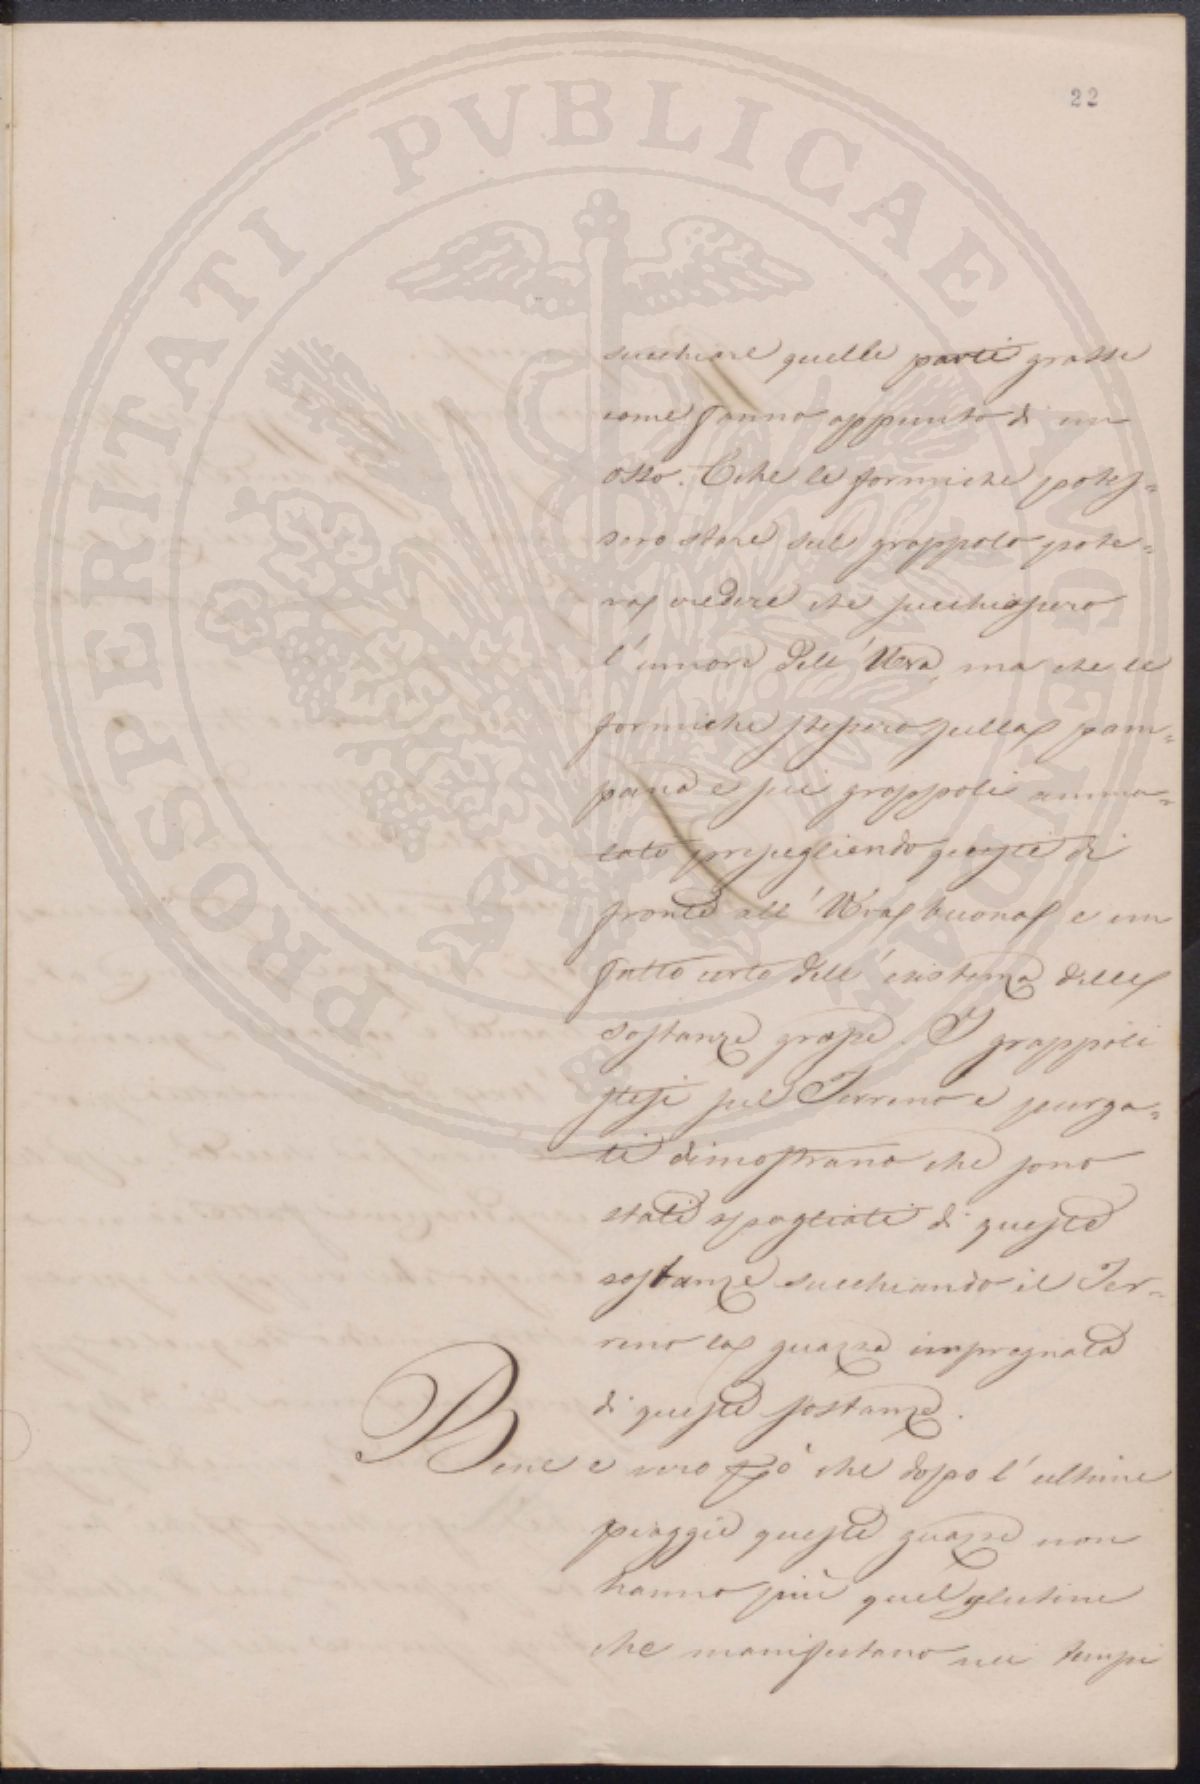 22
PROSPERITATI PVBLICAE AVGENDAE
succhiare quelle parti grasse
come fanno appunto di un
osso. Che le formiche potes=
sero stare sul grappolo pote=
va credere che succhiassero
l'umore dell'Uva, ma che le
formiche stessero sulla pam=
pana e sui grappoli amma=
lati prescegliendo questi di
fronte all'Uva buona e un
fatto certo dell'esistenza delle
sostanze grasse. I grappoli
stesi sul Terreno e purga=
ti dimostrano che sono
stati spogliati di queste
sostanze succhiando il Ter=
reno la guazza impregnata
di queste sostanze.
Bene e vero però che dopo l'ultime
pioggie queste guazze non
hanno più quel glutine
che manifestano nei tempi